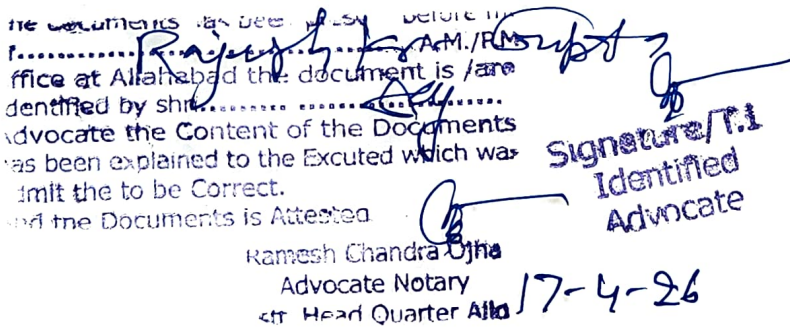 the Documents has been before
Rajesh Kr Gupta
A.M./P.M.
ffice at Allahabad the document is /are
dentified by shri
Advocate the Content of the Documents
as been explained to the Excuted which was
dmit the to be Correct.
and the Documents is Attested
Signature/T.I
Identified
Advocate
Ramesh Chandra Ojha
Advocate Notary
Head Quarter Alld
17-4-26